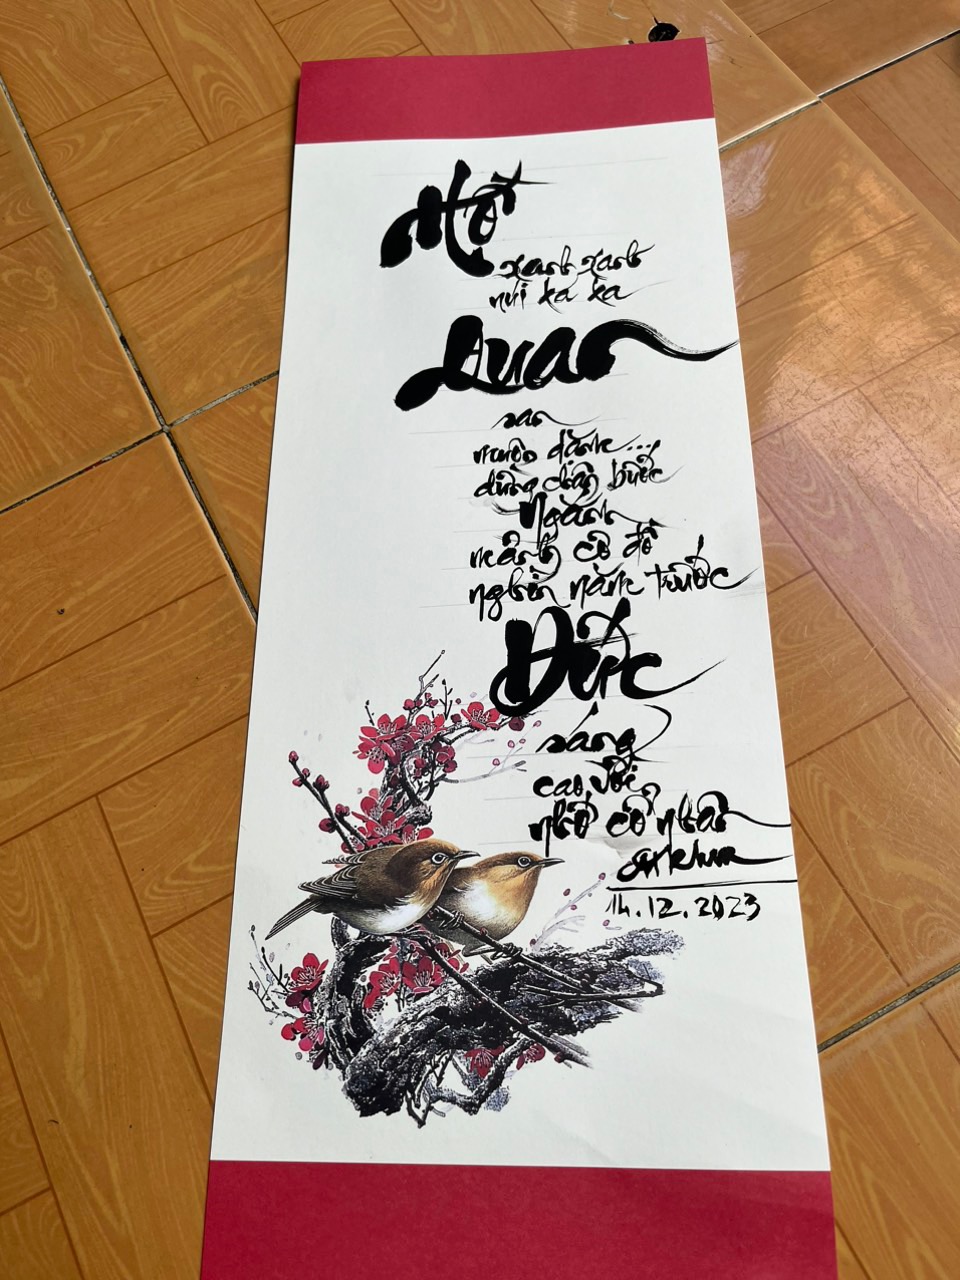 Một
xanh xanh
núi xa xa
Quan
san
muôn dặm...
dừng chân bước
Ngắm
mảnh cố đô
nghìn năm trước
Đức
sáng
cao vời
nhớ cố nhân
14.12.2023